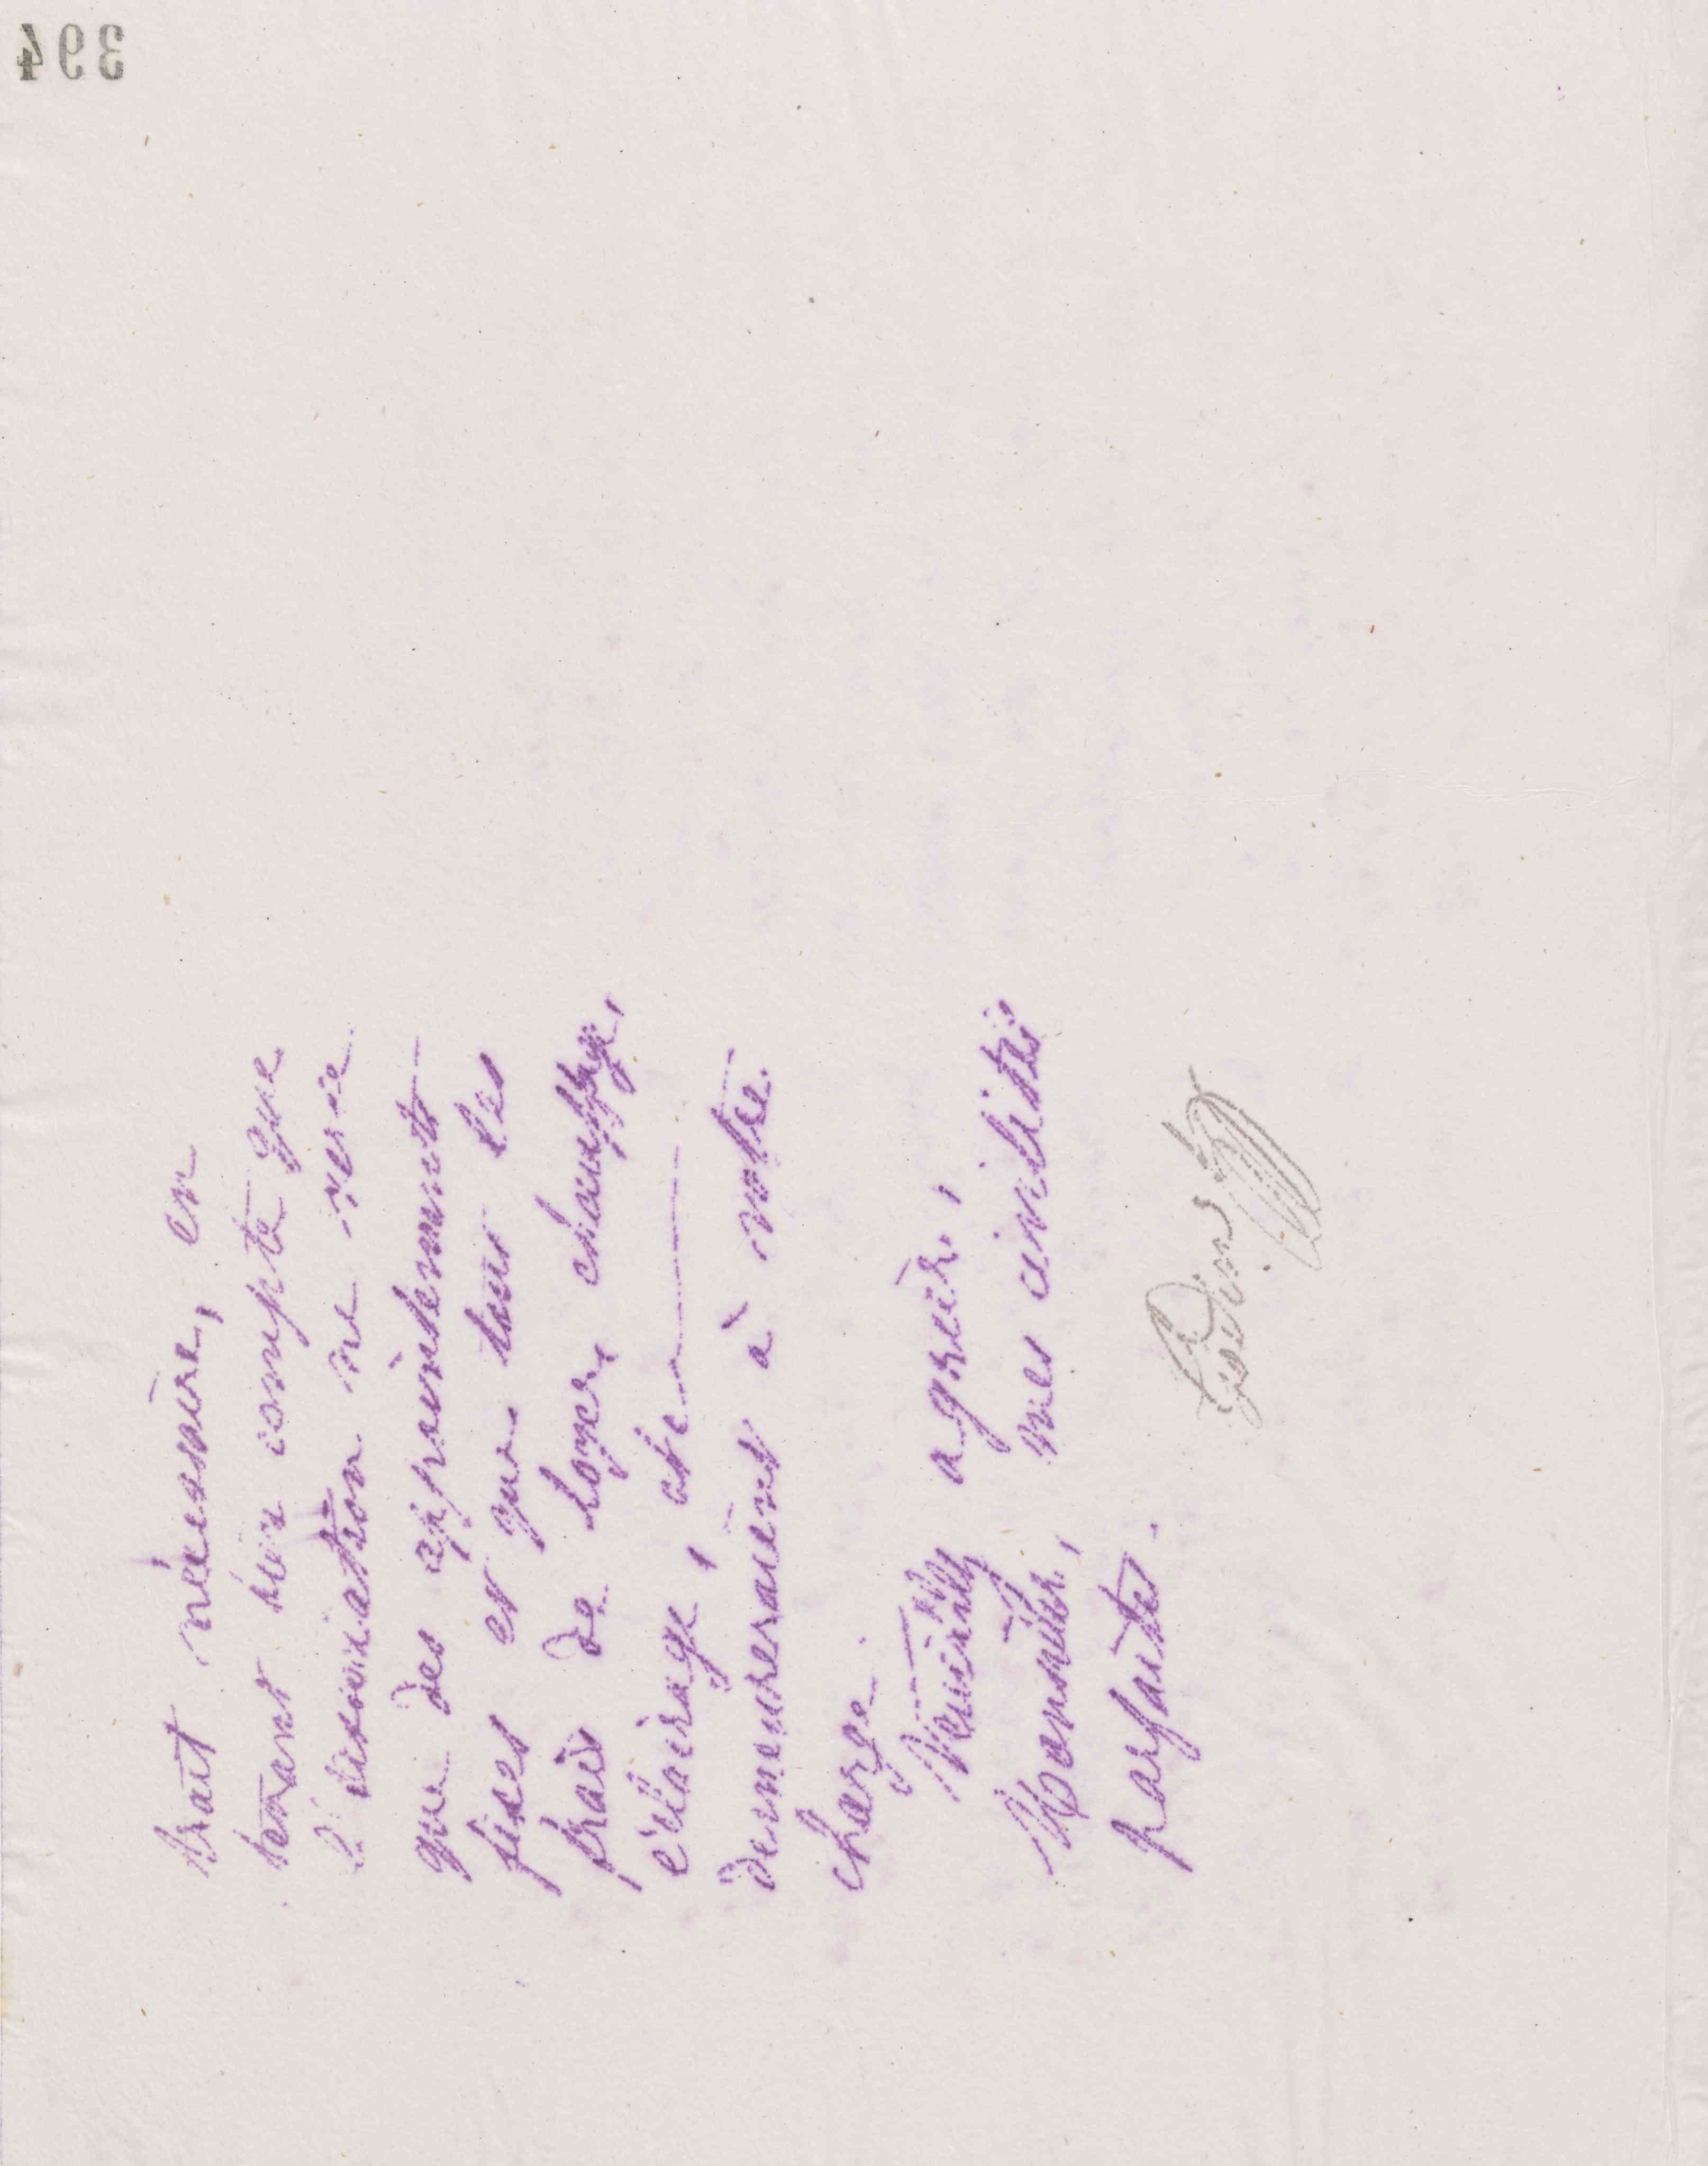 394
trait nécessaire, en
tenant bien compte que
l'association ne verse
que des appointements
fixes et que tous les
frais de loyer, chauffage,
éclairage, etc
demeureraient à votre
charge.
Veuillez agréer,
Monsieur, mes civilités
parfaites.
Godin